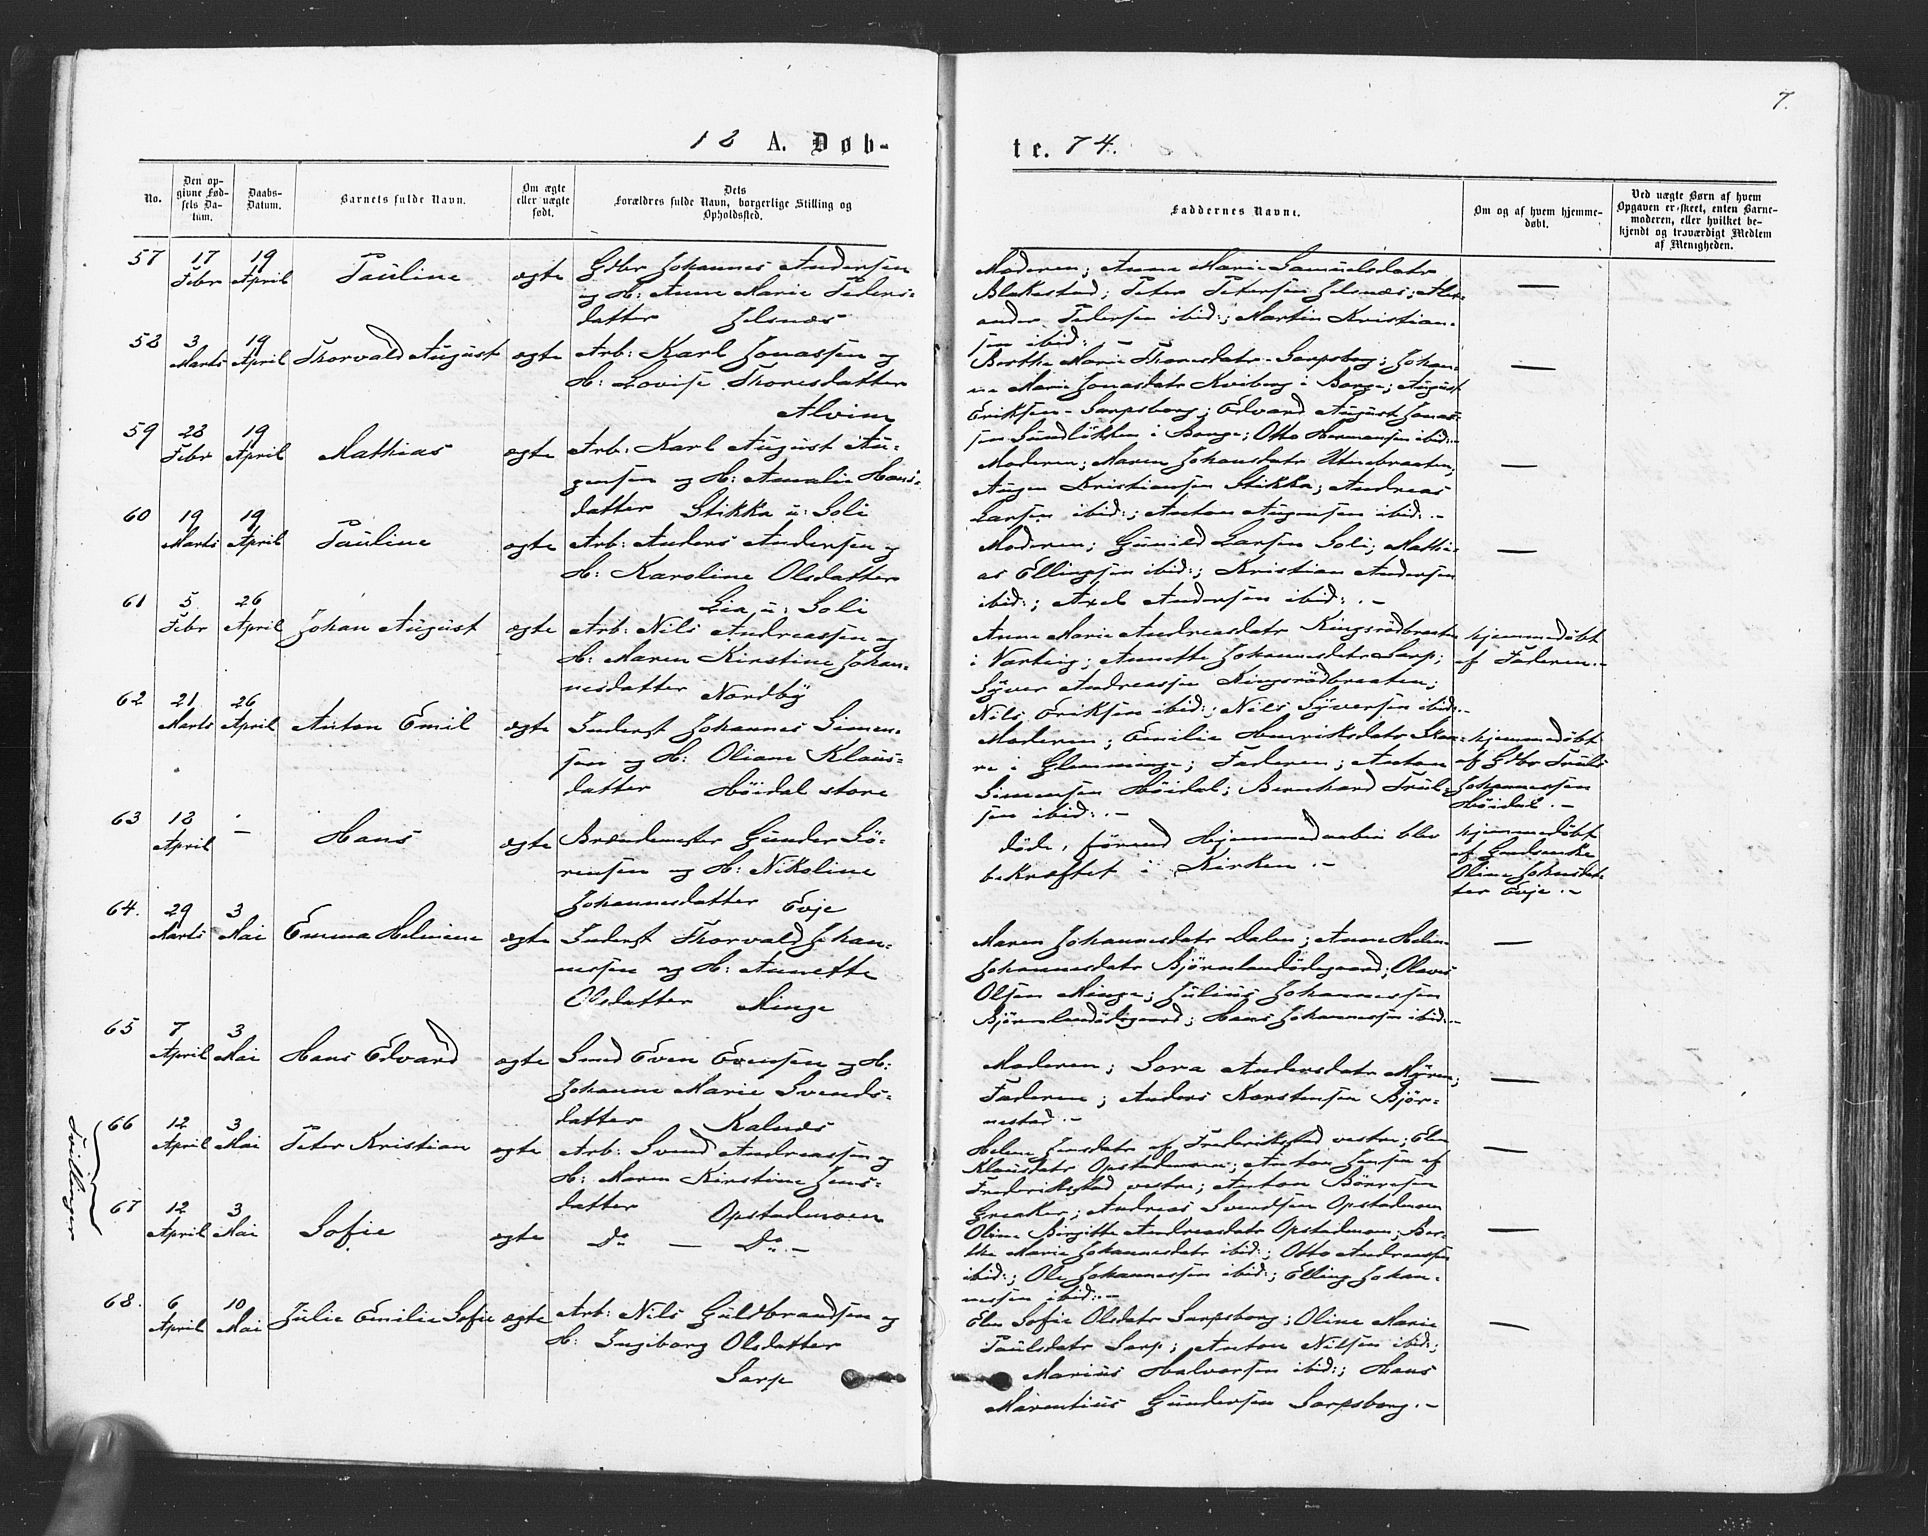 7.
18 A. Døb-
te. 74.
No.
Den op-
givne Fød-
sels Da-
tum.
Daabs-
Datum.
Barnets fulde Navn.
Om ægte
eller uægte
født.
Dets
Forældres fulde Navn, borgerlige Stilling og
Opholdssted.
Faddernes Navne.
Om og af hvem hjemme-
døbt.
Ved uægte Børn af hvem
Opgaven er skeet, enten Barne-
moderen, eller hvilket be-
kjendt og troværdigt Medlem
af Menigheden.
57
17
Febr
19
April
Pauline
ægte
Gdbr Johannes Andersen
og H: Anne Marie Peders-
datter Jelsnæs
Moderen; Anne Marie Samuelsdatr
Blakestad; Peter Petersen Jelsnæs; Alex-
ander Pedersen ibid:; Martin Kristian-
sen ibid: -
—
58
3
Marts
19
April
Thorvald August
ægte
Arb: Karl Jonassen og
H: Lovise Thoresdatter
Alvim
Berthe Marie Thoresdatr Sarpsborg; Johan-
ne Marie Jonasdatr Kviberg i Borge; August
Eriksen - Sarpsborg; Edvard August Jonas-
sen Sundløkken i Borge; Otto Hermansen ibid: -
—
59
28
Febr
19
April
Mathias
ægte
Arb: Karl August Au-
gensen og H: Amalie Hans-
datter Stikka u: Soli
Moderen; Maren Johansdatr Utnebraaten;
Augen Kristiansen Stikka; Andreas
Larsen ibid:; Anton Augensen ibid: -
—
60
19
Marts
19
April
Pauline
ægte
Arb: Anders Andersen og
H: Karoline Olsdatter
Lia u: Soli
Moderen; Gunild Larsen Soli; Mathi-
as Ellingsen ibid:; Kristian Andersen
ibid:; Axel Andersen ibid: -
—
61
5
Febr
26
April
Johan August
ægte
Arb: Nils Andreassen og
H: Maren Kirstine Johan-
nesdatter Nordby
Anne Marie Andreasdatr Kingsrødbraaten
i Varteig; Annette Johannesdatr Sarp;
Syver Andreassen Kingsrødbraaten;
Nils Eriksen ibid:; Nils Syversen ibid: -
hjemmedøbt
af Faderen. -
62
21
Marts
26
April
Anton Emil
ægte
Inderst Johannes Simen-
sen og H: Oliane Klaus-
datter Høidal store
Moderen; Emilie Henriksdatr Skaa-
re i Glemminge; Faderen; Anton
Simensen Høidal; Bernhard Trul-
sen ibid: -
hjemmedøbt
af Gdbr Truls
Johannessen
Høidal. -
63
18
April
—
Hans
ægte
Brændemester Gunder Sø-
rensen og H: Nikoline
Johannesdatter Evje
døde, førend Hjemmedaaben blev
bekræftet i Kirken. -
hjemmedøbt
af
Oline Johansdat-
ter Evje. -
64.
29
Marts
3
Mai
Emma Helmine
ægte
Inderst Thorvald Johan-
nessen og H: Annette
Olsdatter Minge
Maren Johannesdatr Dalen; Anne Helene
Johannesdatr Bjørnlandødegaard; Olaves
Olsen Minge; Julius Johannessen
Bjørnlandødegaard; Hans Johannessen ibid: -
—
65
7
April
3
Mai
Hans Edvard
ægte
Smed Even Evensen og H:
Johanne Marie Svends-
datter Kalnæs
Moderen; Sora Andersdatr Myren;
Faderen; Anders Karstensen Bjør-
nestad. -
—
Tvillinger
66
12
April
3
Mai
Peter Kristian
ægte
Arb: Svend Andreassen og
H: Maren Kirstine Jens-
datter Opstadmoen
Helene Jensdatr af Frederikstad vestre; Elen
Klausdatr Opstadmoen; Anton Jensen af
Frederikstad vestre; Anton Børresen
Greaker; Andreas Svendsen Opstadmoen
—
67
12
April
3
Mai
Sofie
ægte
Do — Do. -
Oline Birgitte Andreasdatr Opstadmoen; Ber-
the Marie Johannesdatr ibid:; Otto Andreassen
ibid:; Ole Johannessen ibid:; Elling Johan-
nessen ibid: -
—
68.
6
April
10
Mai
Julie Emilie Sofie
ægte
Arb: Nils Guldbrandsen og
H: Ingeborg Olsdatter
Sarp
Elen Sofie Olsdatr Sarpsborg; Oline Marie
Paulsdatr Sarp; Anton Nilsen ibid:;
Marius Halvorsen ibid:; Hans
Marentius Gundersen Sarpsborg. -
—